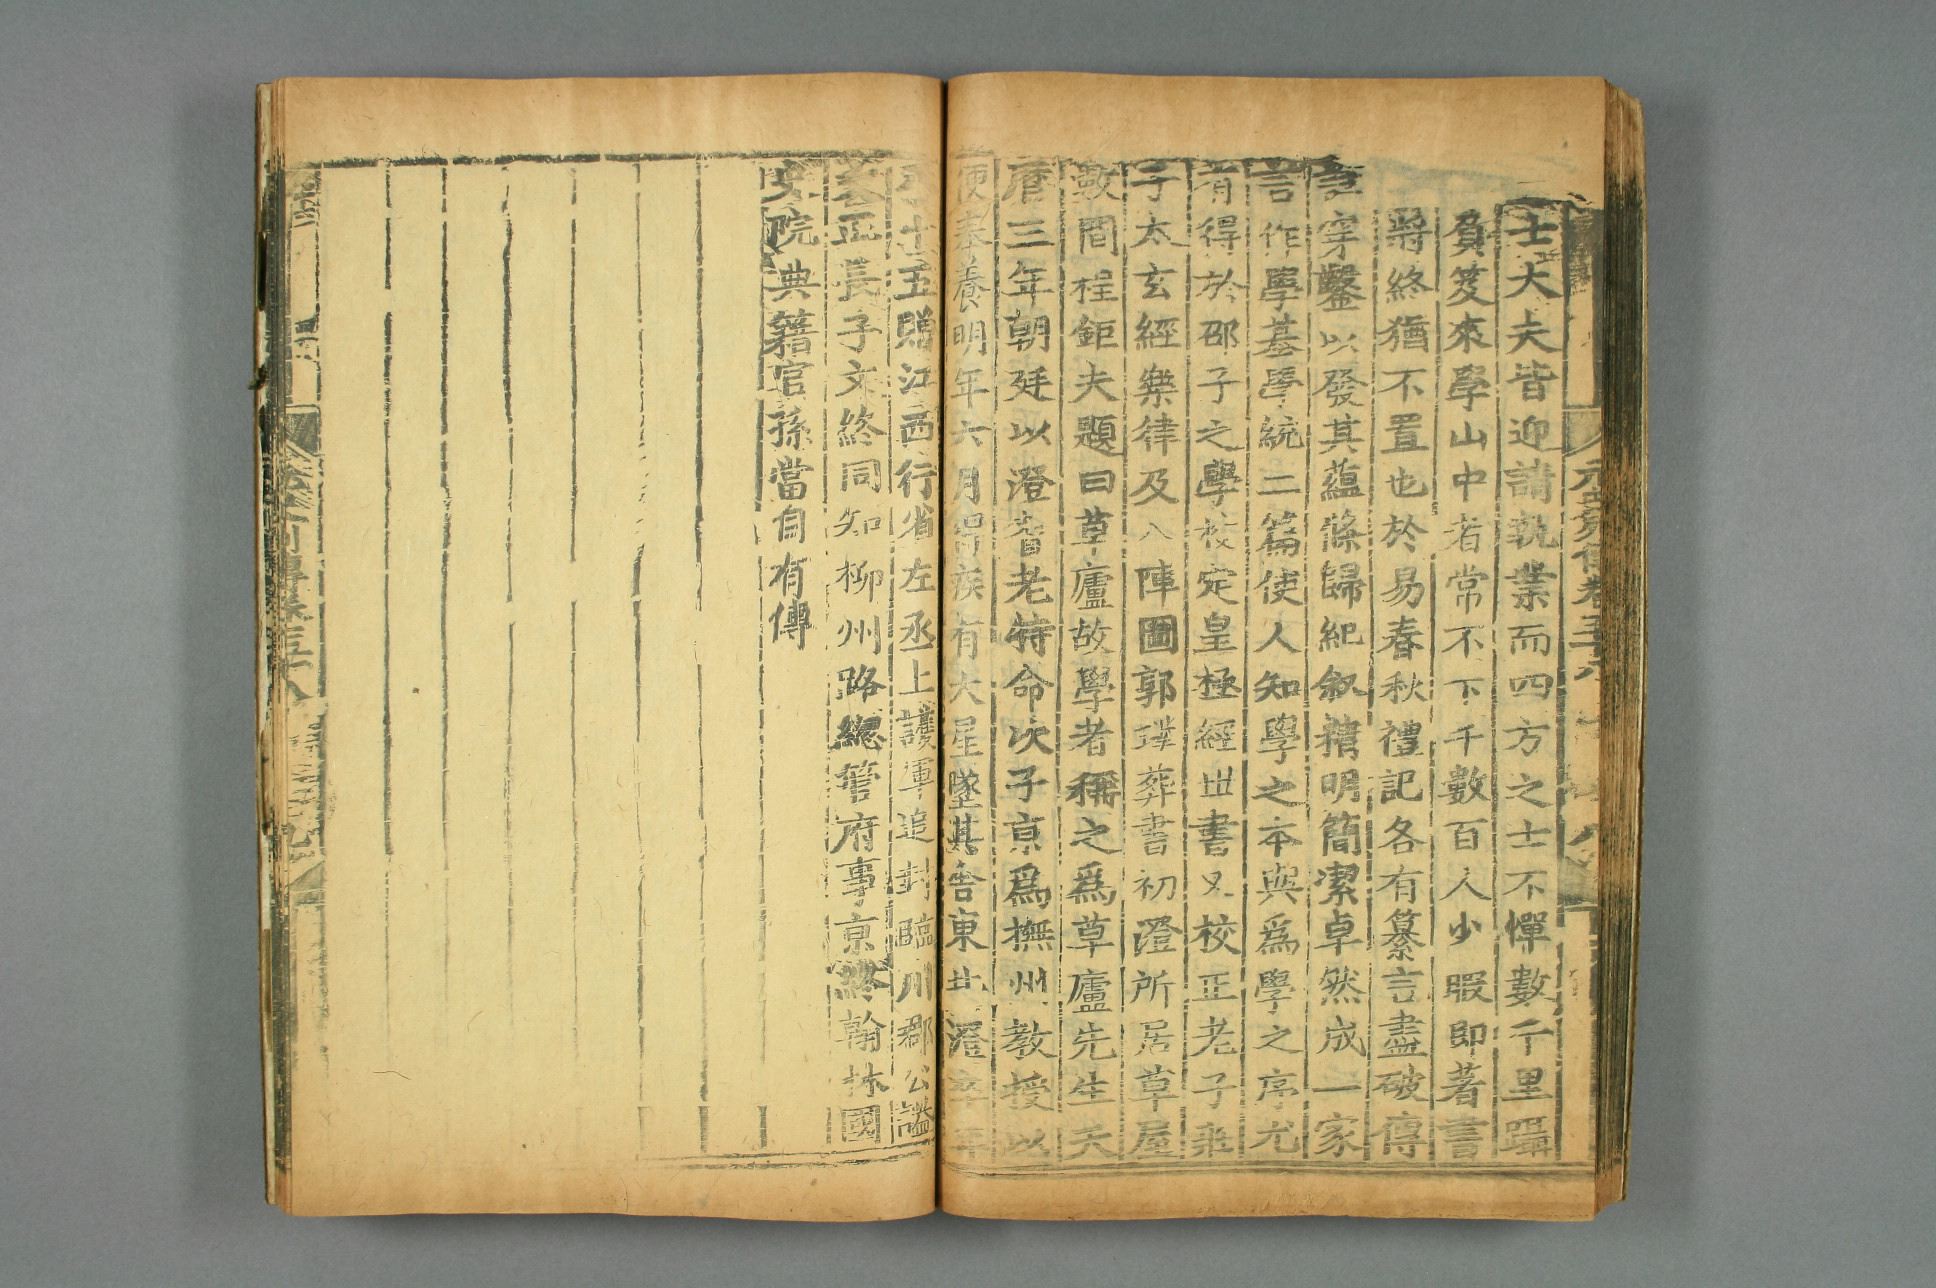 士大夫皆迎請執業而四方之士不憚數千里躡
負笈來學山中者常不下千數百人少暇即著書
將終猶不置也於易春秋禮記各有纂言盡破傳
穿鑿以發其蘊條歸紀敘精明簡潔卓然成一家
言作學基學統二篇使人知學之本與爲學之序尤
有得於邵子之學校定皇極經世書又校正老子莊
子太玄經樂律及八陣圖郭璞葬書初澄所居草屋
數間程鉅夫題曰草廬故學者稱之爲草廬先生天
曆三年朝廷以澄耆老特命次子京爲撫州教授以
便奉養明年六月得疾有大星墜其舍東北澄卒年
八十五贈江西行省左丞上護軍追封臨川郡公謚
文正長子文終同知柳州路總管府事京終翰林國
史院典籍官孫當自有傳